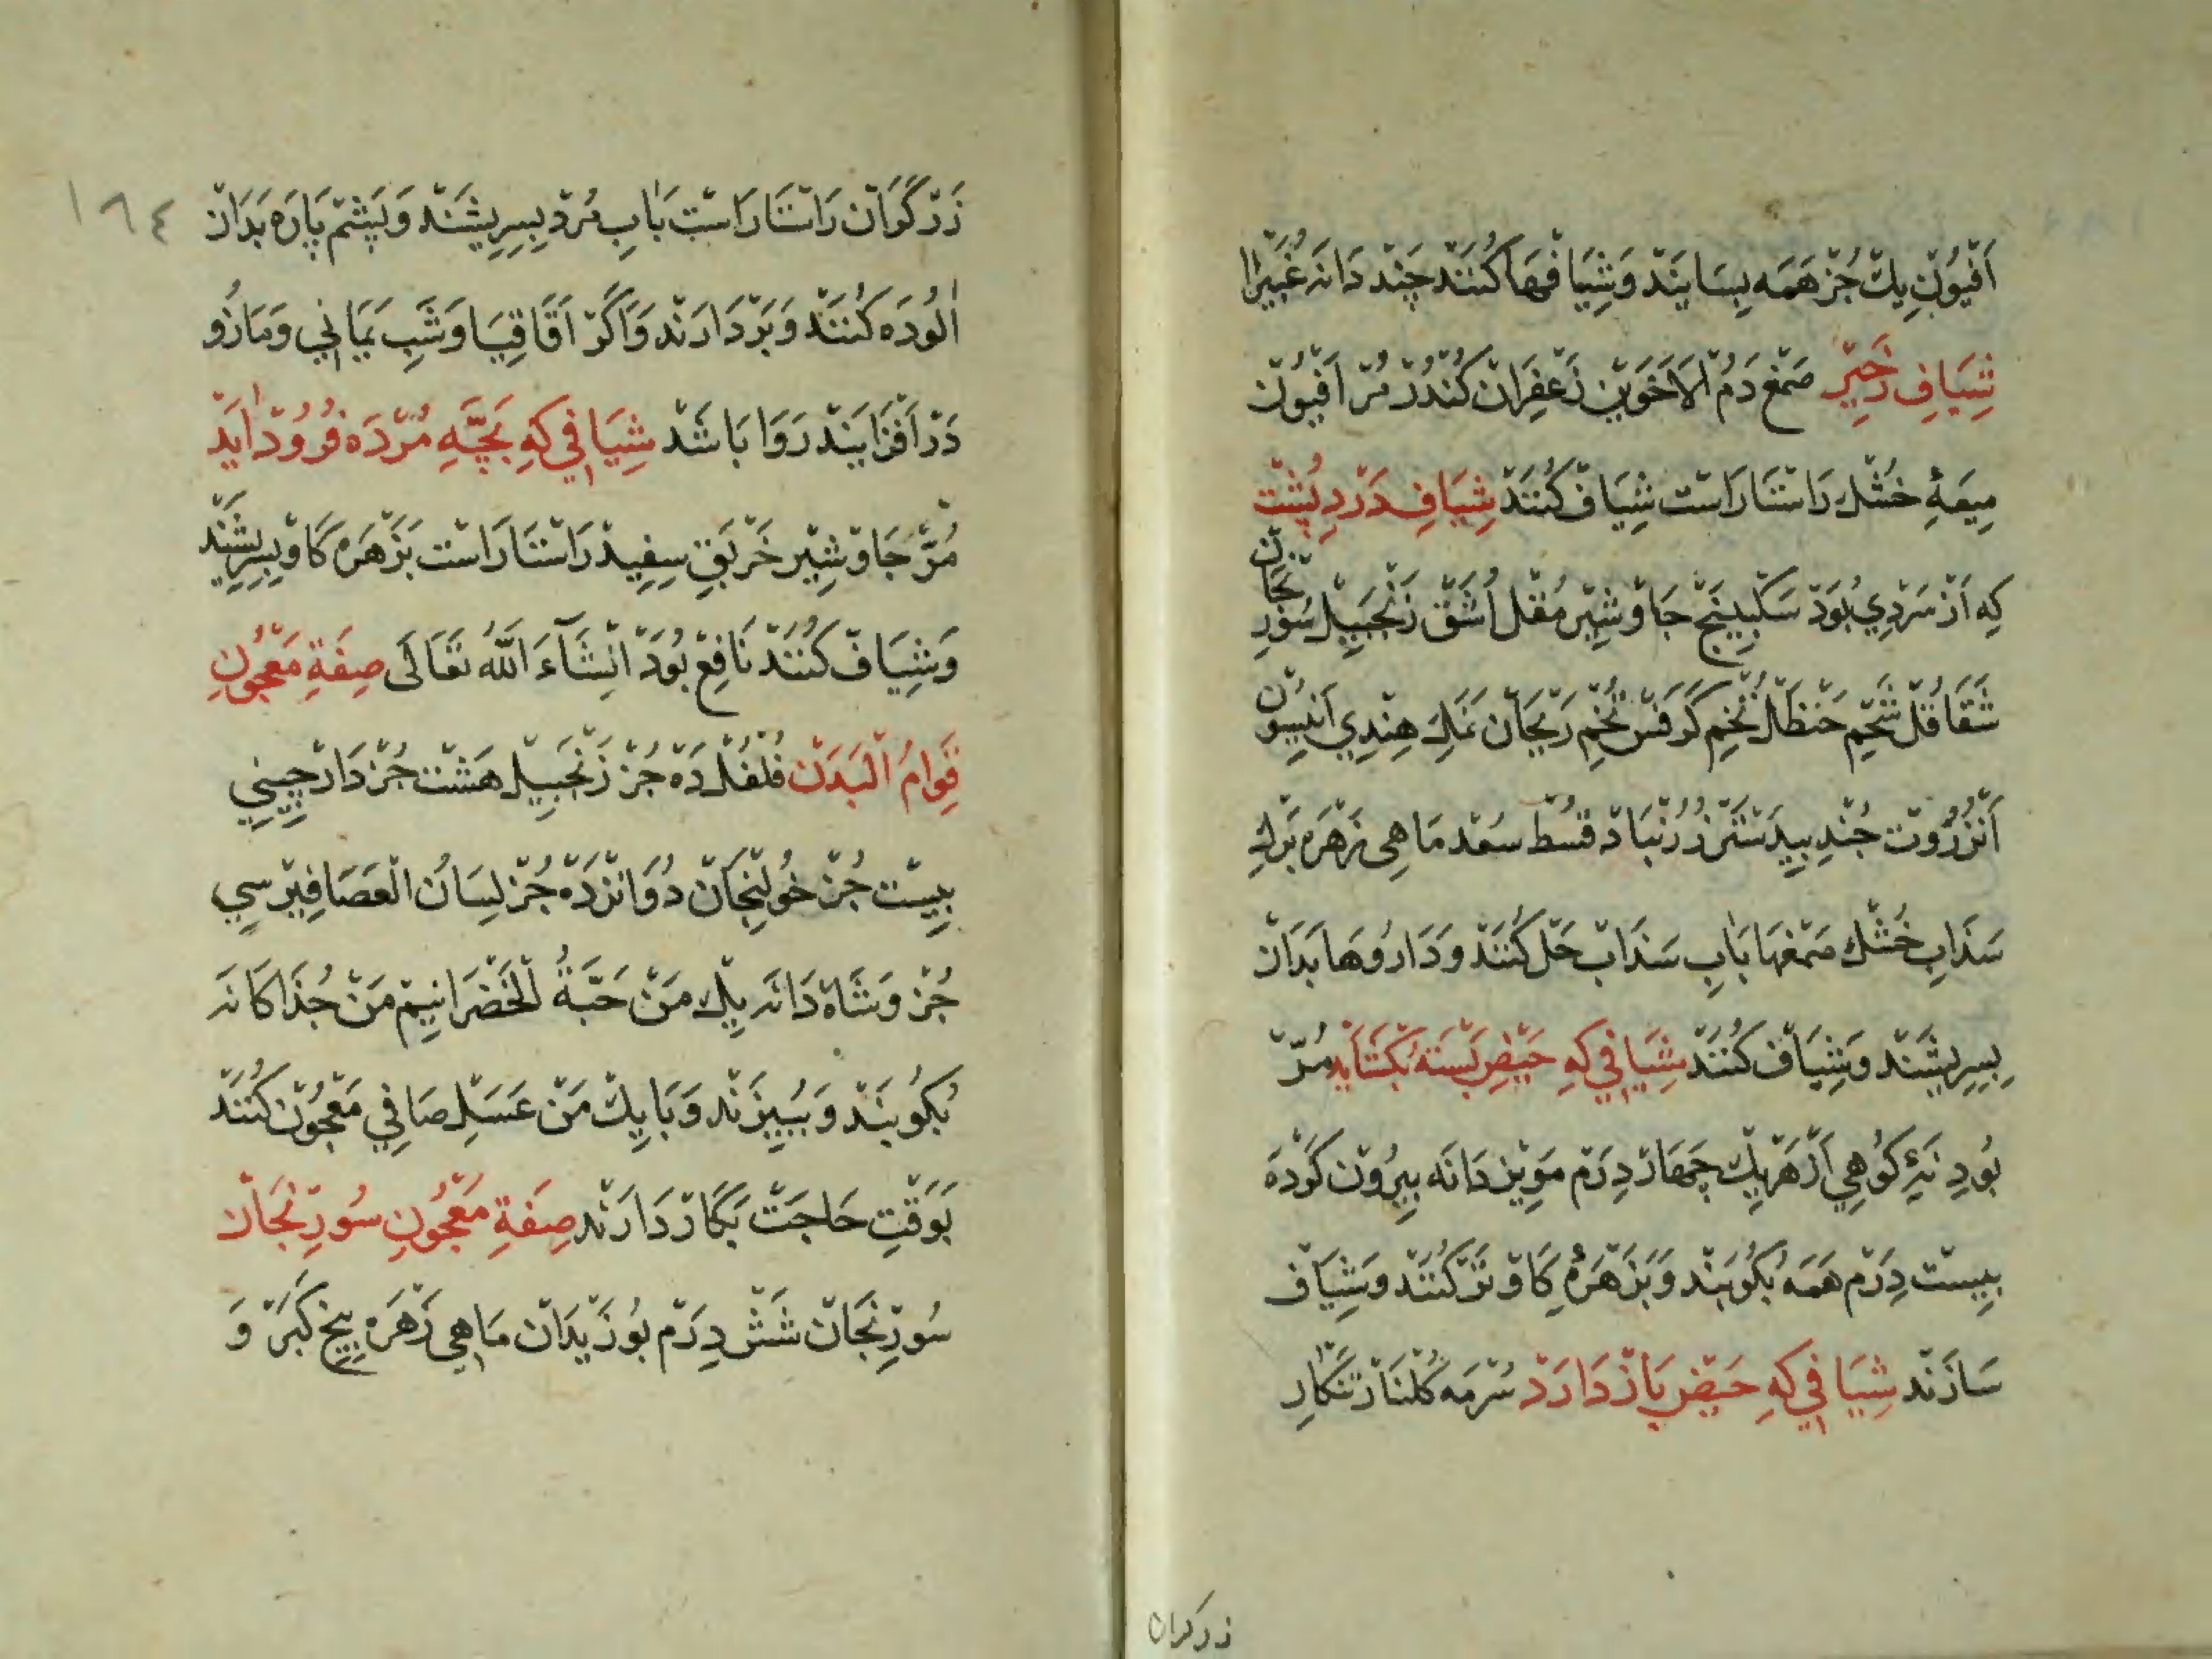 اَفْيُوْنِ يِكْ جُزْ هَمَه بِسَايَنْدْ وَشِيَافْهَا كُنَنْدْ چَنْد دَانَه غُبَيْرَا
شِيَافِ زَحِيْرْ صَمْغ دَمُ الْاَخَوَيْن زَعْفِرَانْ كُنْدُرْ مُرّ اَفْيُوْنْ
مِيعَهٔ خُشْك رَاسْتَارَاسْت شِيَافْ كُنَنْدْ شِيَافِ دَرْدِ پُشْت
كِه اَزْ سَرْدِي بُوَدْ سَكْبِينَجْ جَاوْشِيْر مُقْل اُشَّقْ زَنْجَبِيْل سُوْرِنْجَانْ
شَقَاقُلْ شَحْمِ حَنْظَلْ تُخْمِ كَرَفْس تُخْمِ رَيْحَانْ نَمَكِ هِنْدِي اَنِيْسُونْ
اَنْزَرُوْتْ جُنْدِ بِيدَسْتَرْ زُرُنْبَادْ قُسْطْ سُعْد مَاهِي زَهْرَه بَرْكِ
سَذَابِ خُشْك صَمْغْهَا بَابِ سَذَابْ حَلْ كُنَنْدْ وَدَارُوهَا بَدَانْ
بِسِرِيشَنْد وَشِيَافْ كُنَنْدْ شِيَافِي كِهِ حَيْضِ بَسْتَه بُكْشَايَدْ مُرّ
پُودِنَهِٔ كُوْهِي اَزْ هَرْيِكْ چَهَارْ دِرَمْ مَوِيْز دَانَه بِيْرُوْن كَرْدَه
بِيسْت دِرَمْ هَمَه بُكُوْبَنْد وَبَزَهْرَهٔ كَاوْ تَرْ كُنَنْد وَشِيَافْ
سَازَنْد شِيَافِي كِهِ حَيْض بَازْدَارَدْ سُرْمَه كُلْنَارْ تَنْكَارِ
زركران
١٦٤
زَرْكَرَانْ رَاسْتَارَاسْت بَابِ مُرْد بِسِرِيشَنْد وَپَشْمْ پَارَه بَدَانْ
اٰلُودَه كُنَنْدْ وَبَرْدَارَنْد وَاَكَرْ اَقَاقِيَا وَشَبِ يَمَانِي وَمَازُو
دَرْ اَفْزَايَنْد رَوَا بَاشَدْ شِيَافِي كِهِ بَچَّهِ مُرْدَه فُرُوْدْ اٰيَدْ
مُرّ جَاوْشِيْر خَرْبَقِ سِفِيدْ رَاسْتَارَاسْت بَزَهْرَه كَاوْ بِسِرِيشَنْد
وَشِيَافْ كُنَنْدْ نَافِعْ بُوَدْ اِنْشَآءَ اللّٰهُ تَعَالَى صِفَةِ مَعْجُوْنِ
قِوَامُ الْبَدَنْ فُلْفُلْ دَهْ جُزْ زَنْجَبِيْل هَشْتْ جُزْ دَارْچِينِي
بِيسْت جُزْ خُولِنْجَانْ دُوَانْزْدَهْ جُزْ لِسَانُ الْعَصَافِيْر سِي
جُزْ وَشَاهْ دَانَه يِكْ مَنْ حَبَّةُ الْخَضْرَا نِيمْ مَنْ جُذَاكَانَه
بُكُوبَنْد وَبِبِيزَنْد وَبَايِكْ مَنْ عَسَلِ صَافِي مَعْجُوْن كُنَنْدْ
بَوَقْتِ حَاجَتْ بَكَارْ دَارَنْد صِفَةِ مَعْجُوْنِ سُورِنْجَانْ
سُورِنْجَانْ شَشْ دِرَمْ بُوزَيْدَانْ مَاهِي زَهْرَه بِيخِ كَبَرْ وَ